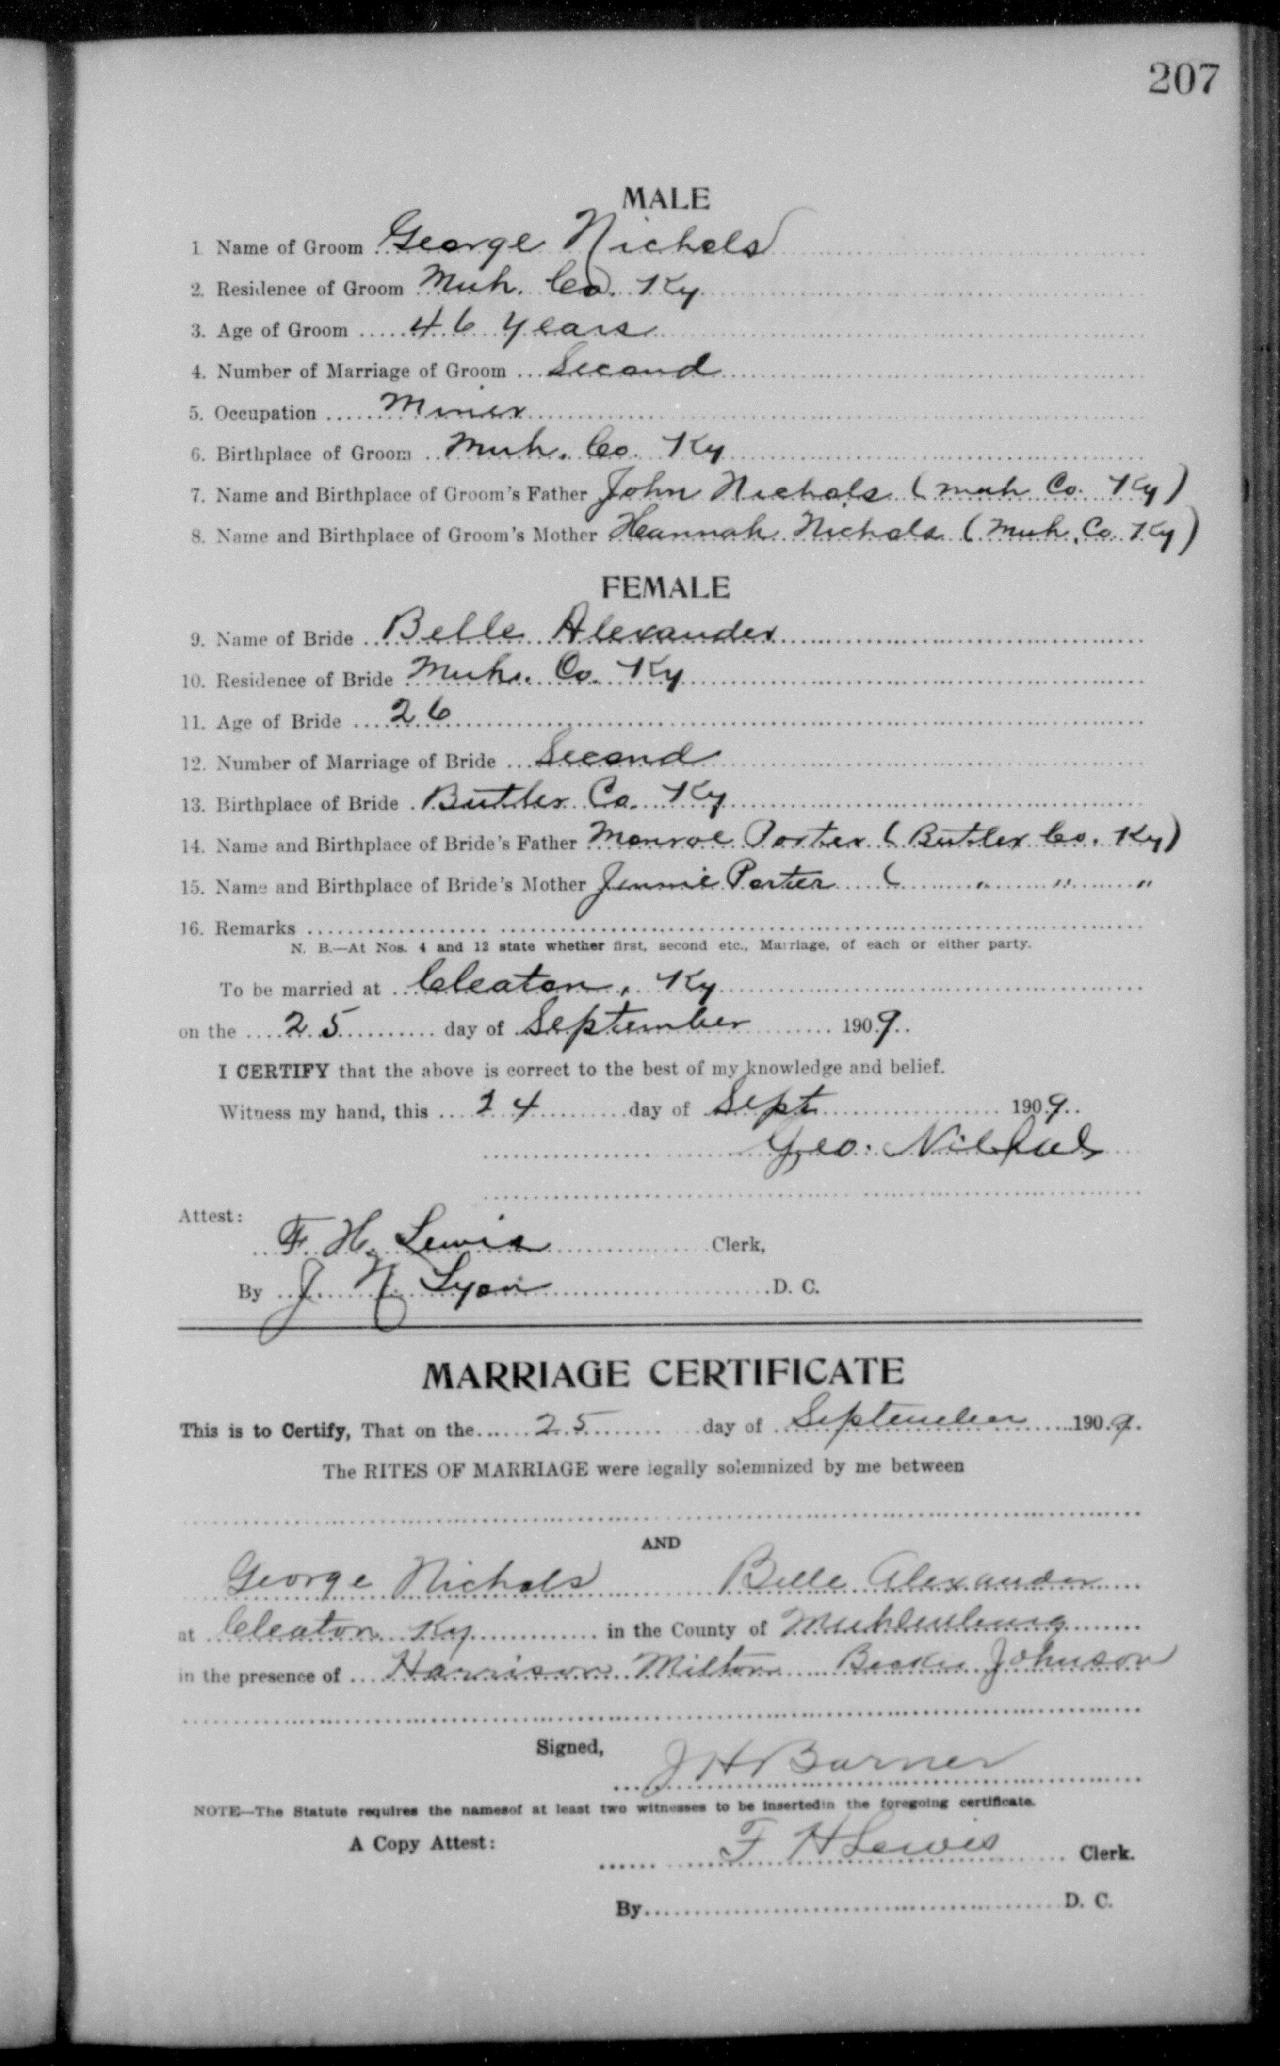 207
MALE
1. Name of Groom George Nichols
2. Residence of Groom Muh. Co. Ky
3. Age of Groom 46 years
4. Number of Marriage of Groom Second
5. Occupation Miner
6. Birthplace of Groom Muh. Co. Ky
7. Name and Birthplace of Groom's Father John Nichols (Muh Co. Ky)
8. Name and Birthplace of Groom's Mother Hannah Nichols (Muh. Co. Ky)
FEMALE
9. Name of Bride Belle Alexander
10. Residence of Bride Muh. Co. Ky
11. Age of Bride 26
12. Number of Marriage of Bride Second
13. Birthplace of Bride Butler Co. Ky
14. Name and Birthplace of Bride's Father Monroe Porter (Butler Co. Ky)
15. Name and Birthplace of Bride's Mother Jennie Porter ( " " "
16. Remarks
N. B.—At Nos. 4 and 12 state whether first, second etc., Marriage, of each or either party.
To be married at Cleaton, Ky
on the 25 day of September 1909.
I CERTIFY that the above is correct to the best of my knowledge and belief.
Witness my hand, this 24 day of Sept 1909.
Geo. Nichols
Attest:
F. H. Lewis Clerk,
By J. N. Lyon D. C.
MARRIAGE CERTIFICATE
This is to Certify, That on the 25 day of September 1909.
The RITES OF MARRIAGE were legally solemnized by me between
AND
George Nichols Belle Alexander
at Cleaton Ky in the County of Muhlenburg
in the presence of Harrison Milton Beckie Johnson
Signed, J H Barner
NOTE—The Statute requires the namesof at least two witnesses to be insertedin the foregoing certificate.
A Copy Attest: F H Lewis Clerk.
By D. C.